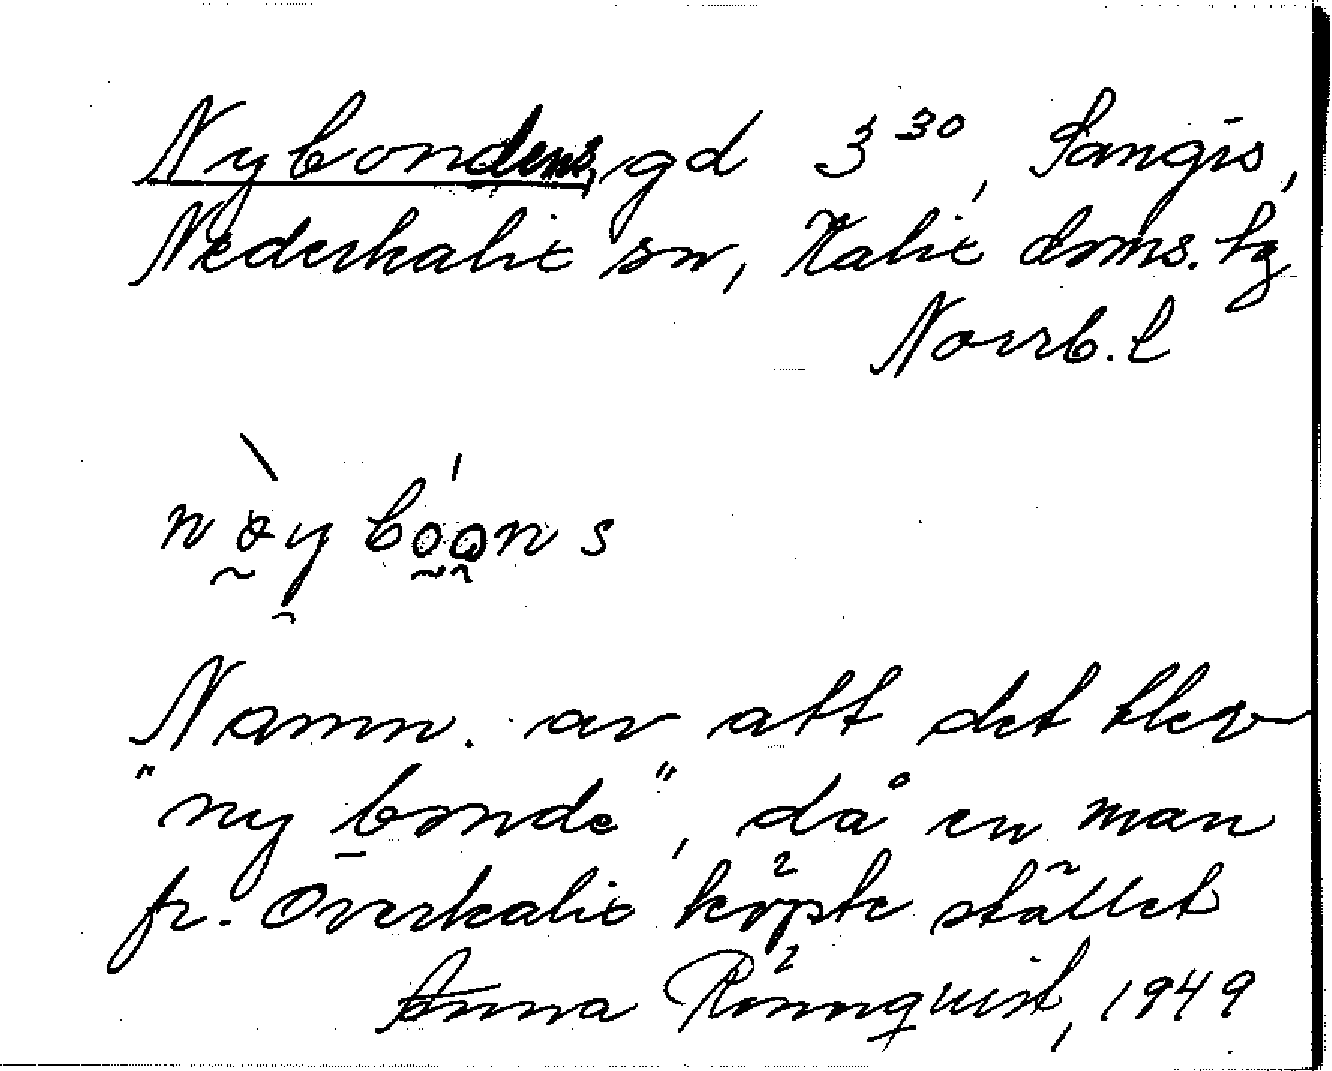 Nybondens, gd 3³⁰, Sangis,
Nederkalix sn, Kalix doms. hg
Norrb. l
Namn. av att det blev
"ny bonde", då en man
fr. Överkalix köpte stället
Anna Rönnquist, 1949